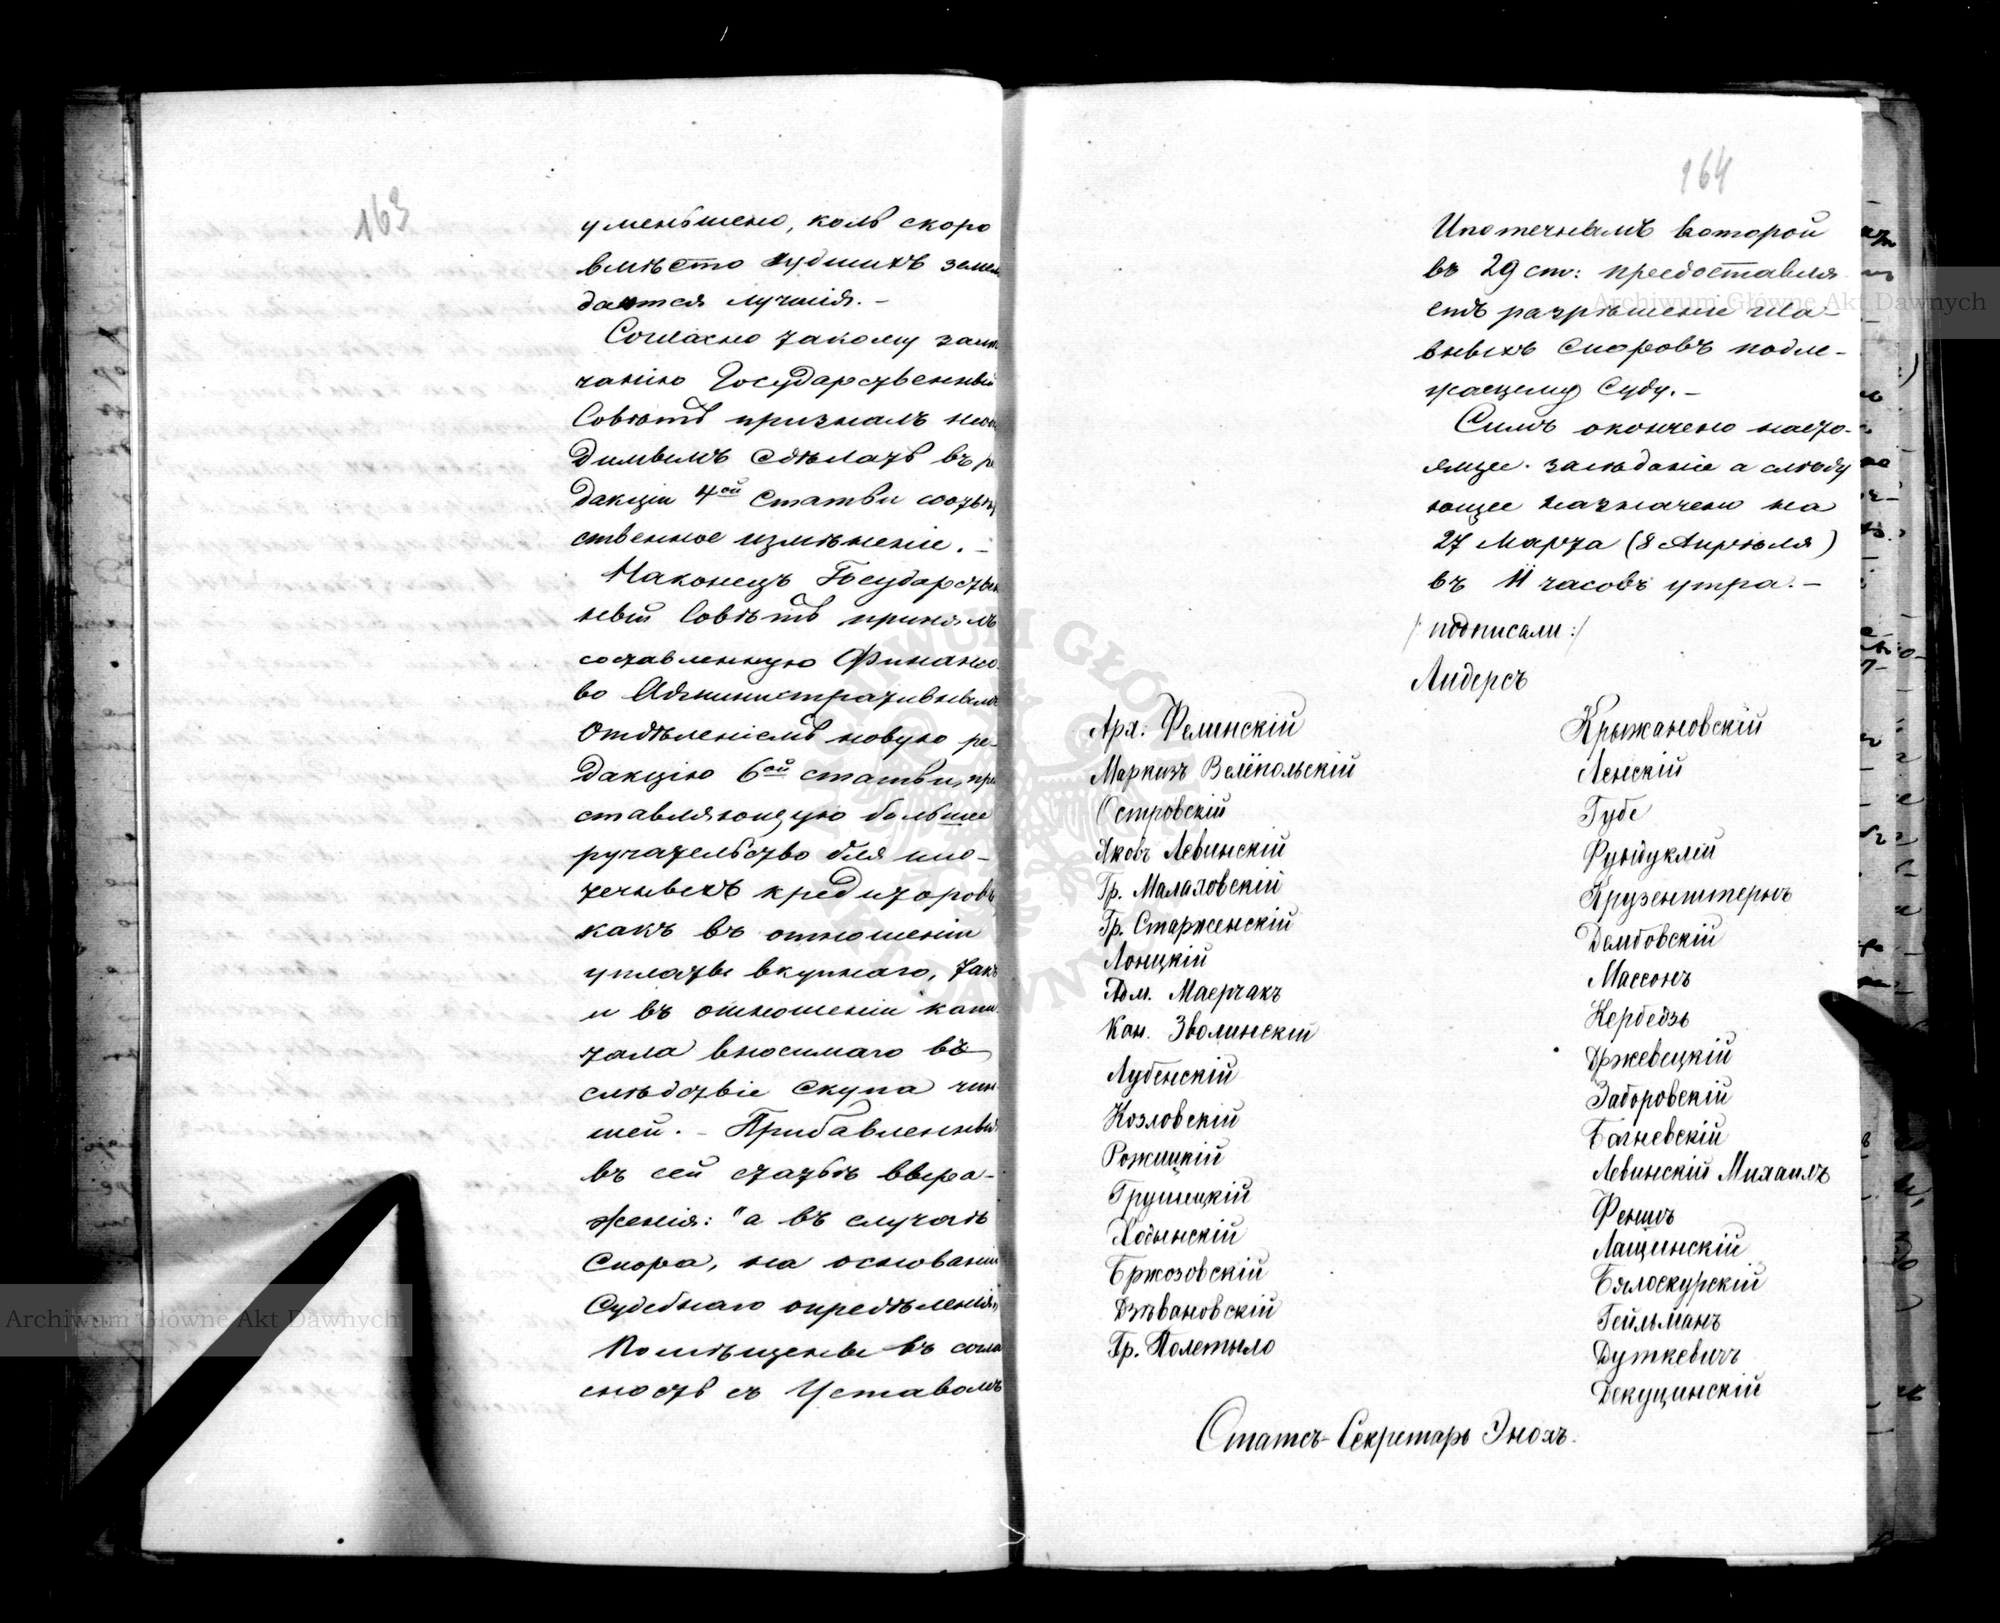 163
уменьшено, коль скоро
вмѣсто худшихъ земель
даются лучшія. –
Согласно такому замѣ
чанію Государственный
Совѣтъ призналъ необхо
димымъ сдѣлать въ ре
дакціи 4ой статьи соотвѣт
ственное измѣненіе. –
Наконецъ Государствен
ный Совѣтъ принялъ
составленную Финансо
во Административнымъ
Отдѣленіемъ новую ре–
дакцію 6ой статьи, пред
ставляющую большее
ручательство для ипо–
течныхъ кредиторовъ,
какъ въ отношеніи
уплаты вкупнаго, такъ
и въ отношеніи капи
тала вносимаго въ
слѣдствіе скупа чин
шей. – Прибавленныя
въ сей статьѣ выра–
женія: "а въ случаѣ
спора, на основаніи
Судебнаго опредѣленія"
Помѣщены въ согла
сность съ Уставомъ
164
Ипотечнымъ который
въ 29 ст: предоставля
етъ разрѣшеніе гла–
вныхъ споровъ подле–
жащему Суду. –
Симъ окончено насто–
ящее засѣданіе а слѣду
ющее назначено на
27 Марта (8 Апрѣля)
въ 11 часовъ утра. –
/: подписали :/
Лидерсъ
Арх: Фелинскій
Маркизъ Велёпольскій
Островскій
Яковъ Левинскій
Гр. Малаховскій
Гр. Старженскій
Лонцкій
Адм. Маерчакъ
Кан. Зволинскій
Лубенскій
Козловскій
Рожицкій
Грушецкій
Ходынскій
Бржозовскій
Дзѣвановскій
Гр. Полетыло
Крыжановскій
Ленскій
Губе
Фундуклей
Крузенштернъ
Дембовскій
Массонъ
Кербедзь
Држевецкій
Заборовскій
Багневскій
Левинскій Михаилъ
Феншъ
Лащинскій
Бялоскурскій
Гейльманъ
Дуткевичъ
Декуцинскій
Статсъ–Секретарь Энохъ.
Archiwum Główne Akt Dawnych
Archiwum Główne Akt Dawnych